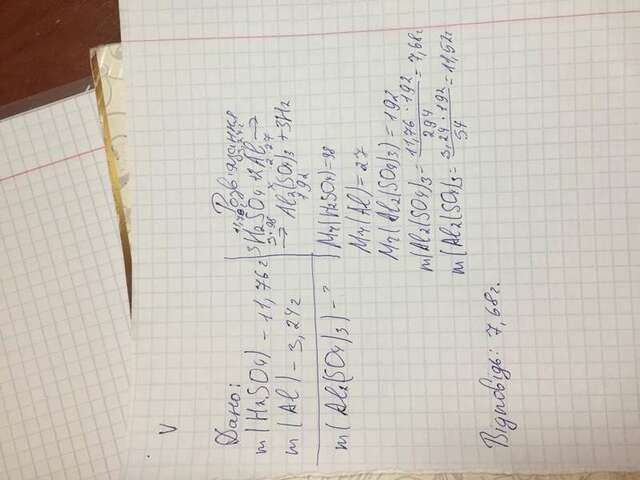 V
Дано:
m(H2SO4) - 11,76г
m(Al) - 3,24г
m(Al2(SO4)3) - ?
Розв'язання
11,76 3,24г
3H2SO4 + 2Al →
3·98 x 2·27
→ Al2(SO4)3 + 3H2
192
Mr(H2SO4) = 98
Mr(Al) = 27
Mr(Al2(SO4)3) = 192
m(Al2(SO4)3 = 11,76 · 192 / 294 = 7,68г
m(Al2(SO4)3 = 3,24 · 192 / 54 = 11,52г
Відповідь: 7,68г.